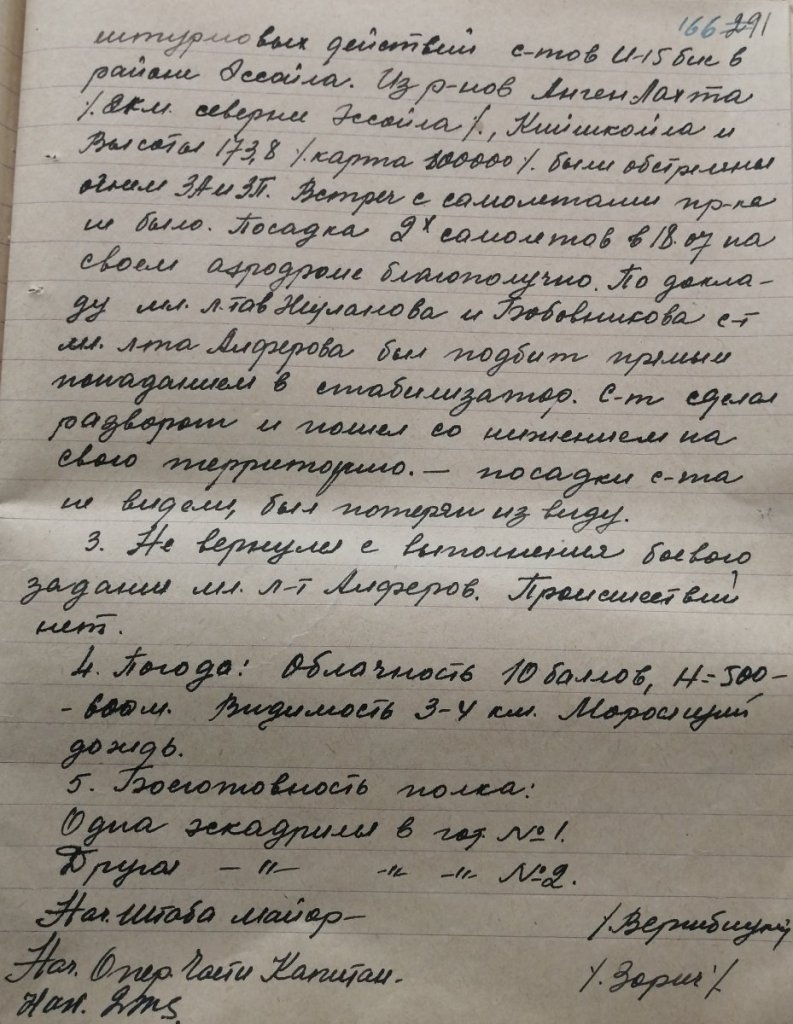 166 291
штурмовых действий с-тов И-15 бис в
районе Эссойла. Из р-нов Анген Лахта
/.8 км. севернее Эссойла/., Кишкойла и
Высоты 173,8 /.карта 100000/. были обстреляны
огнем ЗА и ЗП. Встреч с самолетами пр-ка
не было. Посадка 2х самолетов в 18.07 на
своем аэродроме благополучно. По докла-
ду мл. л-тов и Бобовникова с-т
мл. л-та Алферова был подбит прямым
попаданием в стабилизатор. С-т сделал
разворот и пошел со нижением на
свою территорию. — посадки с-та
не видели, был потерян из виду.
3. Не вернулся с выполнения боевого
задания мл. л-т Алферов. Происшествий
нет.
4. Погода: Облачность 10 баллов, Н=500-
-600м. Видимость 3-4 км. Моросящий
дождь.
5. Боеготовность полка:
Одна эскадрилья в гот. №1.
Другая -"- -"- -"- №2.
Нач. Штаба майор-
Нач. Опер. Части Капитан. /.Зорич/